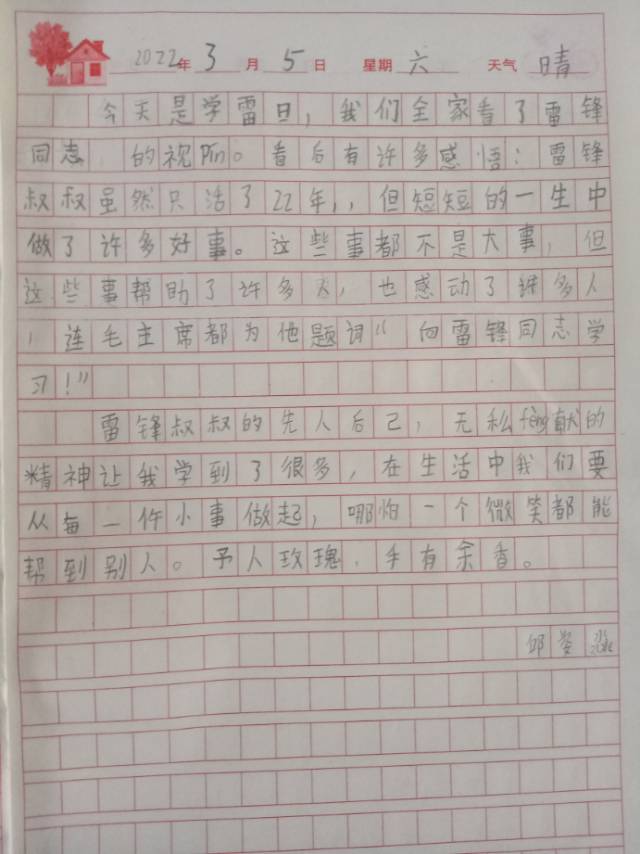 2022年3月5日 星期六 天气晴
今天是学雷日，我们全家看了雷锋
同志的视pin。看后有许多感悟：雷锋
叔叔虽然只活了22年，，但短短的一生中
做了许多好事。这些事都不是大事，但
这些事帮助了许多人，也感动了许多人
，连毛主席都为他题词“向雷锋同志学
习！”
雷锋叔叔的先人后己，无私fèng献的
精神让我学到了很多，在生活中我们要
从每一件小事做起，哪怕一个微笑都能
帮到别人。予人玫瑰，手有余香。
邱姿